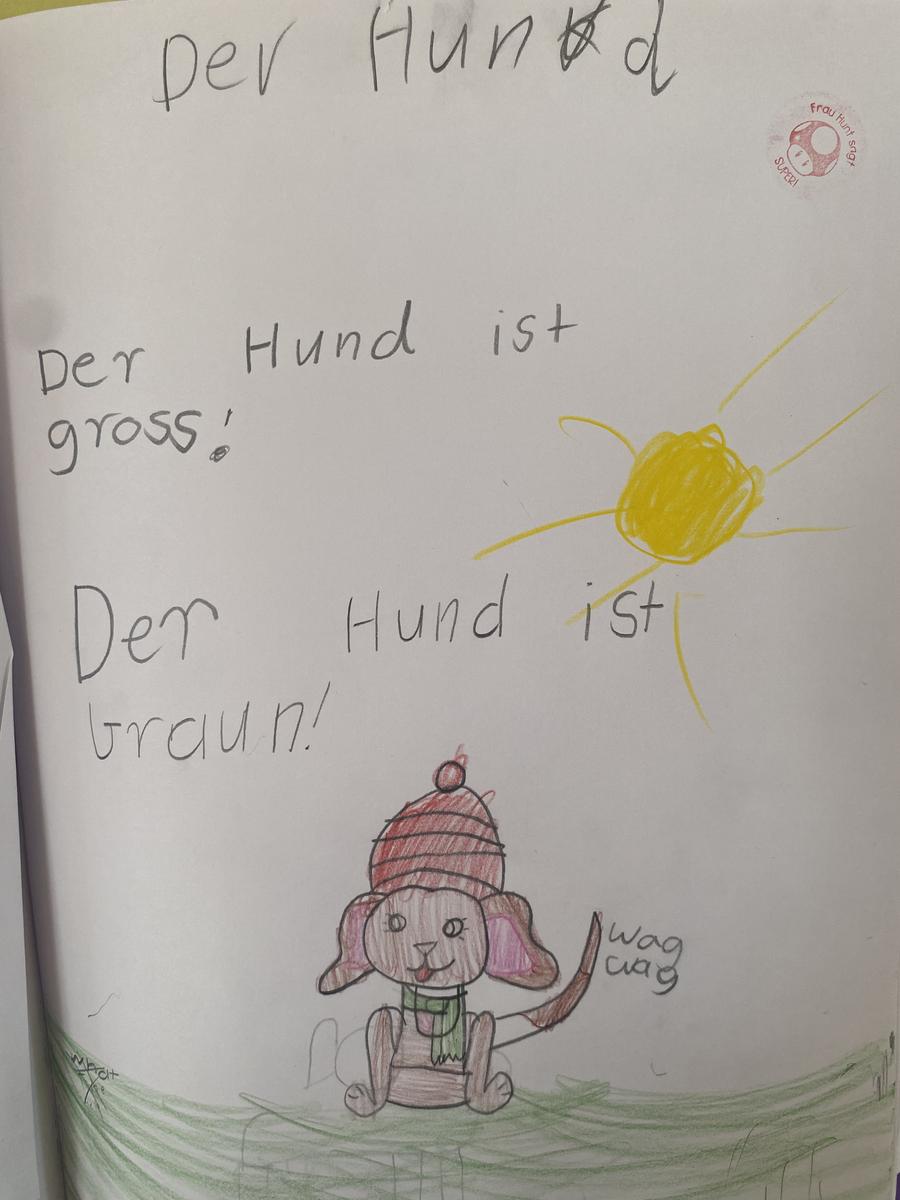 Der Hund
Frau Hunt sagt
SUPER!
Der Hund ist
gross!
Der Hund ist
braun!
wag
wag